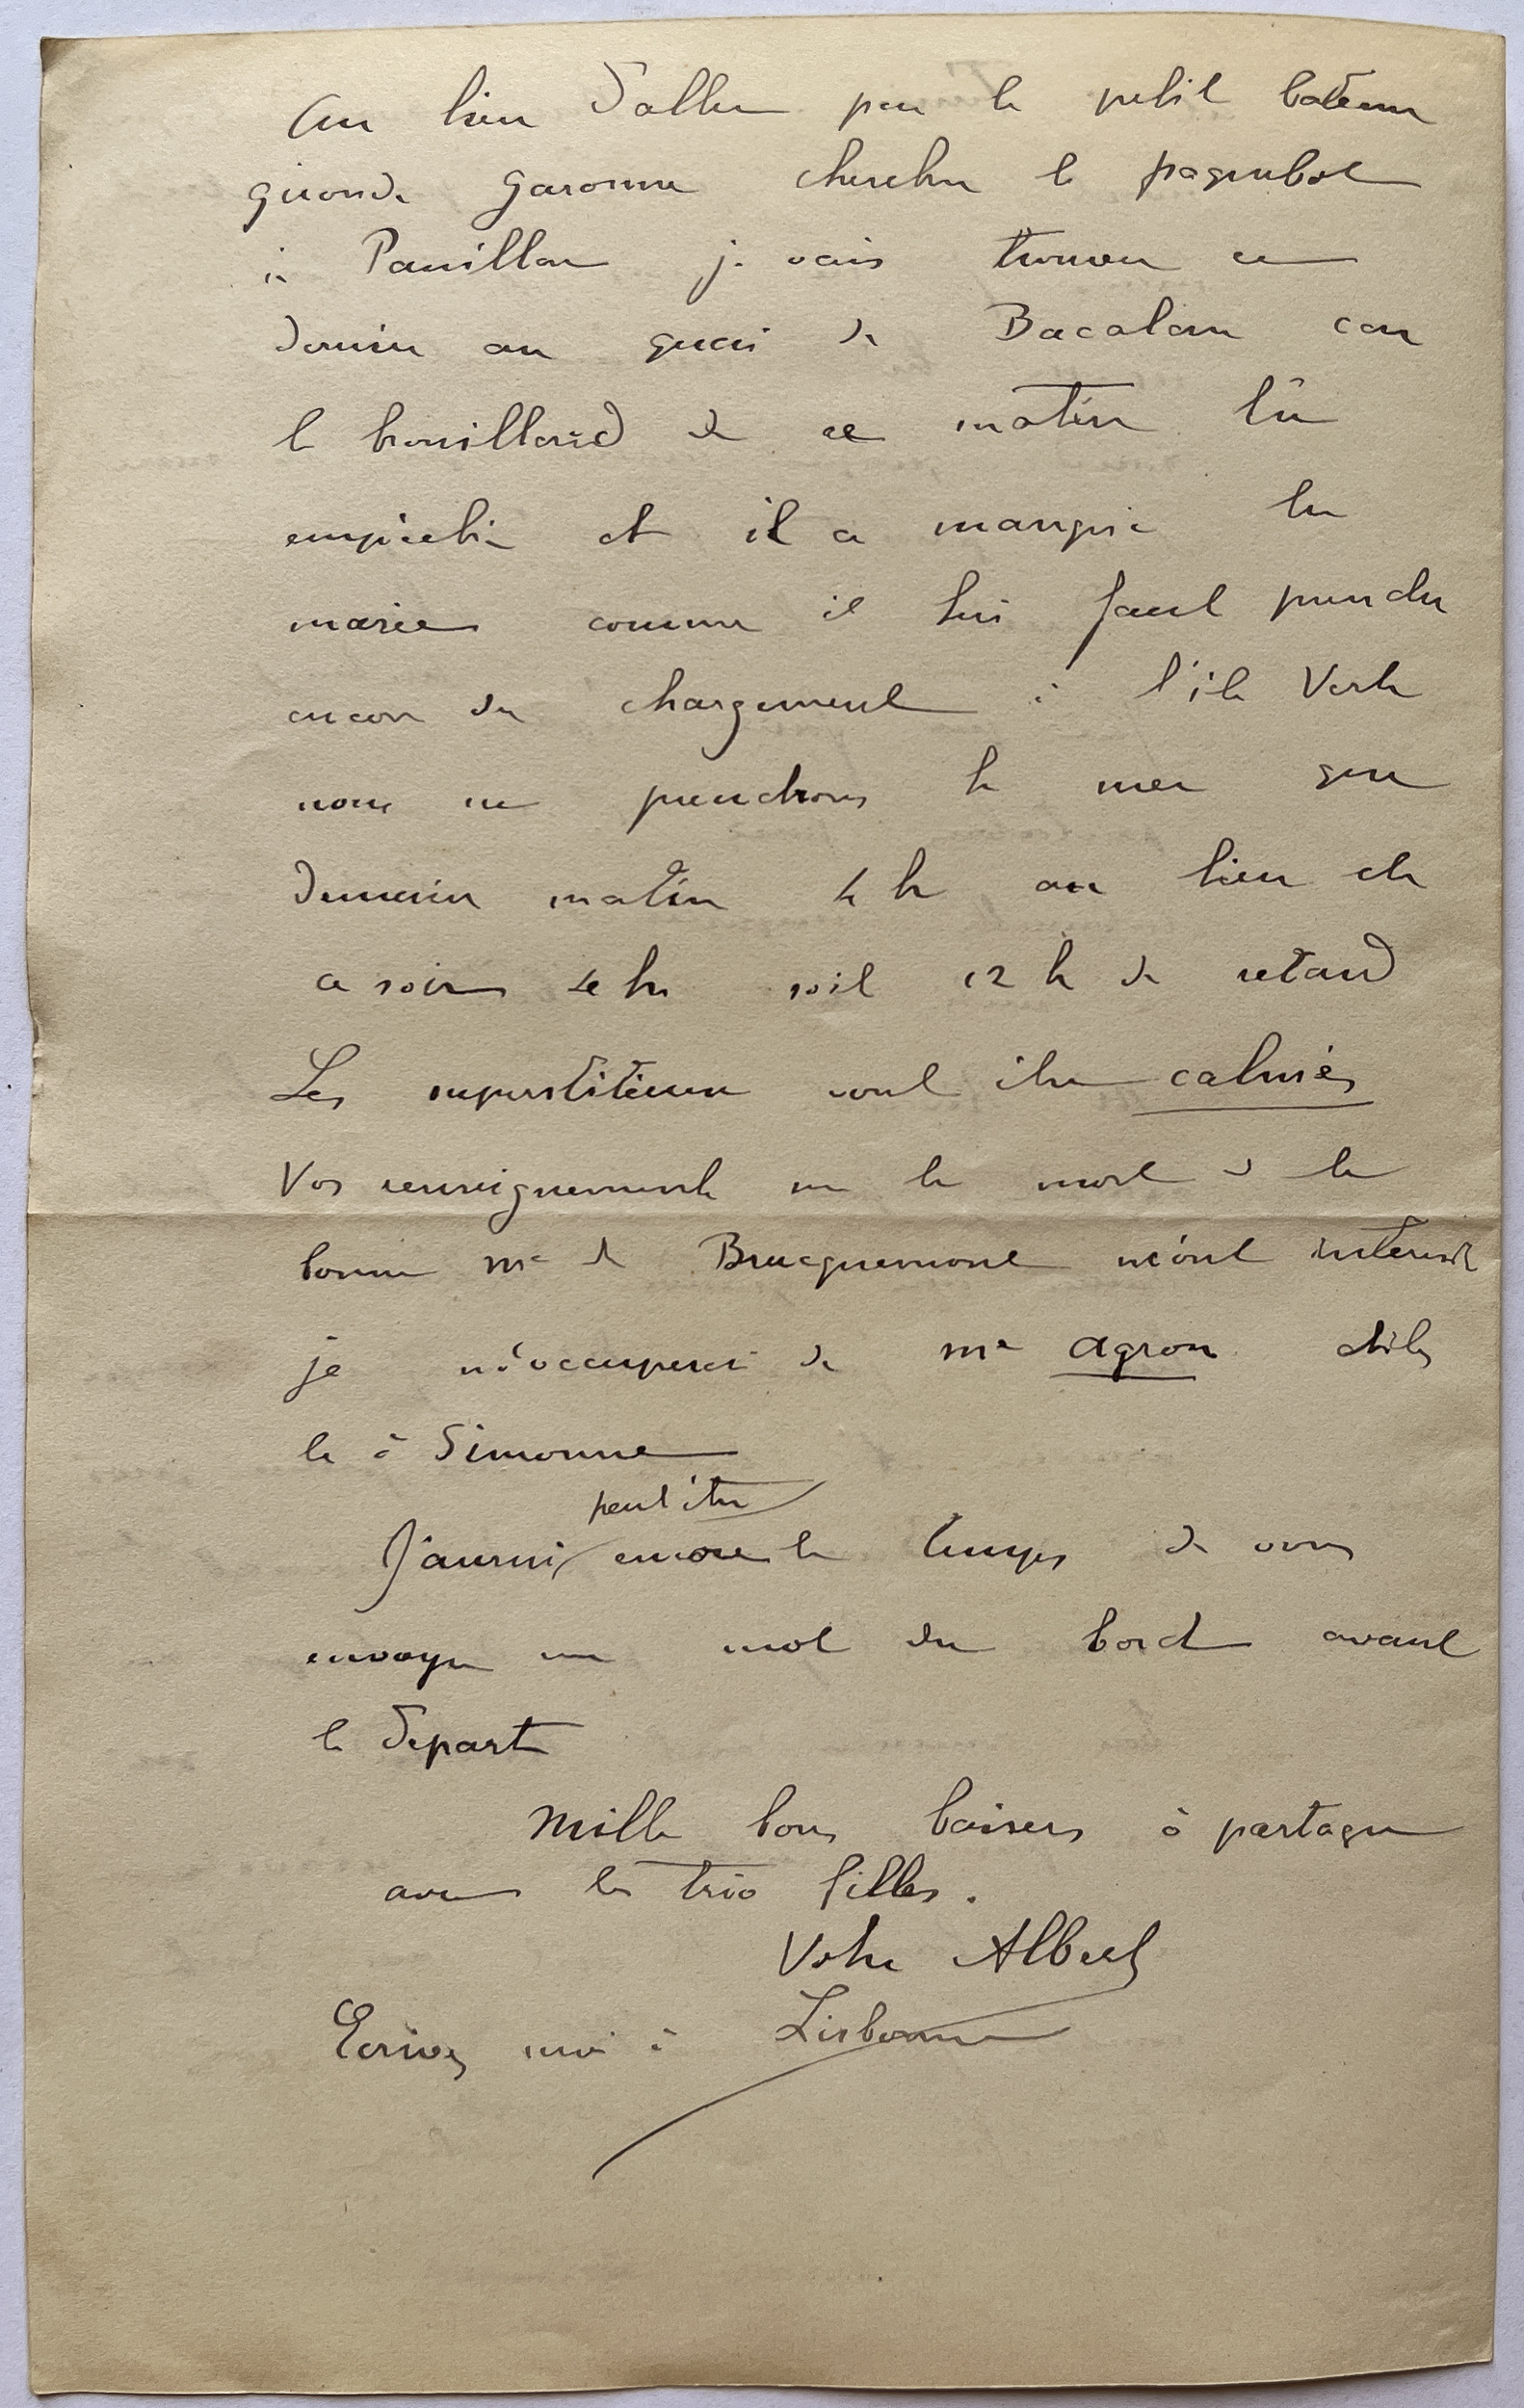 Au lieu d'aller par le petit bateau
Gironde Garonne chercher le paquebot
à Pauillac je vais trouver ce
dernier au quai de Bacalan car
le brouillard de ce matin l'a
empêché et il a manqué la
marée comme il lui faut prendre
encore du chargement à l'île Verte
nous ne prendrons la mer que
demain matin 4 h au lieu de
ce soir 4 h soit 12 h de retard
Les superstitieux vont être calmés
Vos renseignements sur la mort de la
bonne Me de Brucquemont m'ont intéressé
je m'occuperai de Me Agron dites
le à Simonne
peut être
J'aurai encore le temps de vous
envoyer un mot du bord avant
le départ
Mille bons baisers à partager
avec les trio filles.
Votre Albert
Ecrivez moi à Lisbonne